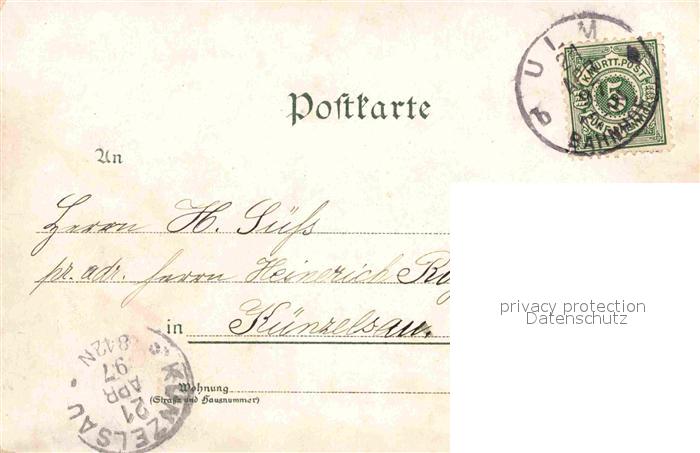 ULM
21 APR
97
BAHNHOF
K. WÜRTT. POST
5
Postkarte
An
Herrn H. Süß
pr. adr. Herrn Heinerich
in Künzelsau.
privacy protection
Datenschutz
Wohnung
(Straße und Hausnummer)
KÜNZELSAU
21
APR
97
8-12N